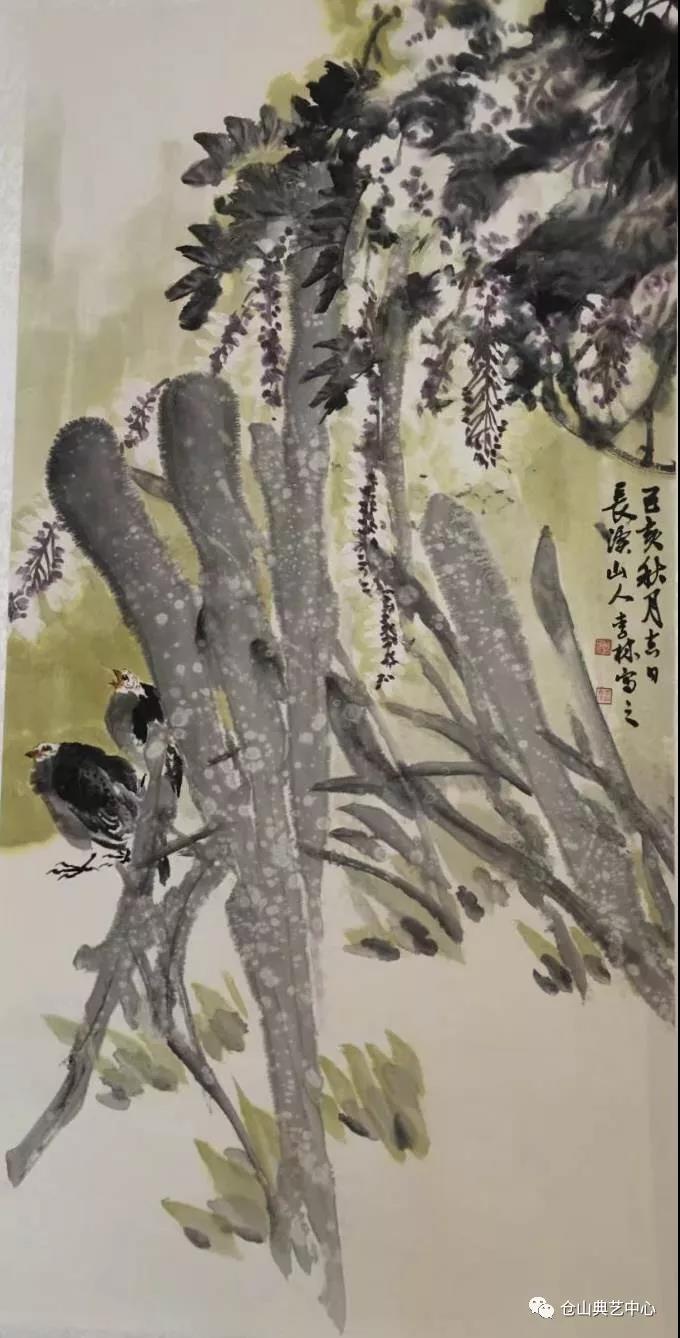 己亥秋月吉日
長溪山人李林寫之
仓山典艺中心